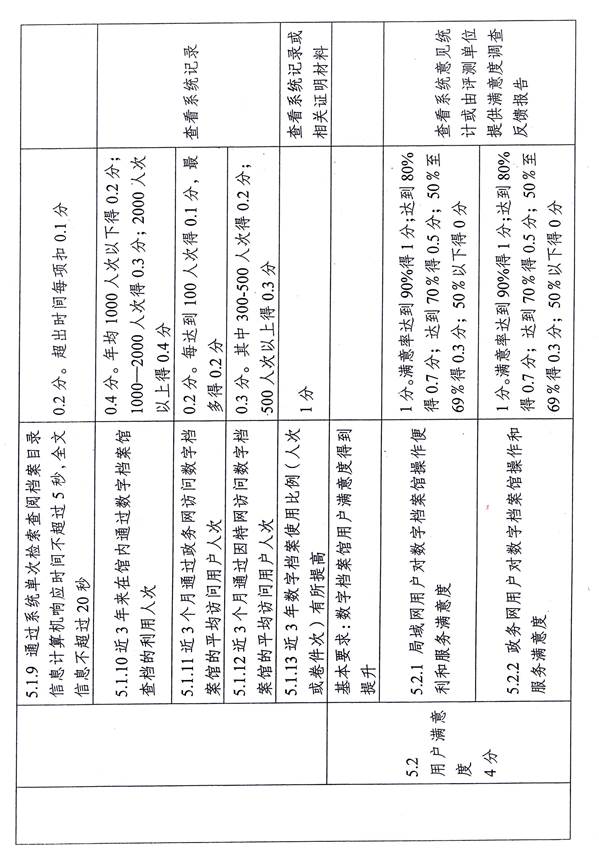 5.1.9 通过系统单次检索查阅档案目录
信息计算机响应时间不超过5秒,全文
信息不超过20秒
0.2分。超出时间每项扣0.1分
5.1.10 近3年来在馆内通过数字档案馆
查档的利用人次
0.4分。年均1000人次以下得0.2分;
1000—2000人次得0.3分;2000人次
以上得0.4分
查看系统记录
5.1.11 近3个月通过政务网访问数字档
案馆的平均访问用户人次
0.2分。每达到100人次得0.1分,最
多得0.2分
5.1.12 近3个月通过因特网访问数字档
案馆的平均访问用户人次
0.3分。其中300-500人次得0.2分;
500人次以上得0.3分
5.1.13 近3年数字档案使用比例(人次
或卷件次)有所提高
1分
查看系统记录或
相关证明材料
5.2
用户满意
度
4分
基本要求:数字档案馆用户满意度得到
提升
5.2.1 局域网用户对数字档案馆操作便
利和服务满意度
1分。满意率达到90%得1分;达到80%
得0.7分;达到70%得0.5分;50%至
69%得0.3分;50%以下得0分
查看系统意见统
计或由评测单位
提供满意度调查
反馈报告
5.2.2 政务网用户对数字档案馆操作和
服务满意度
1分。满意率达到90%得1分;达到80%
得0.7分;达到70%得0.5分;50%至
69%得0.3分;50%以下得0分